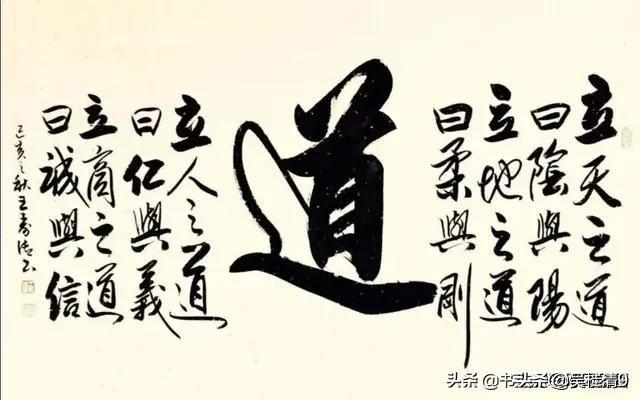 立天之道
曰陰與陽
立地之道
曰柔與剛
道
立人之道
曰仁與義
立商之道
曰誠與信
己亥之秋王
头条 @